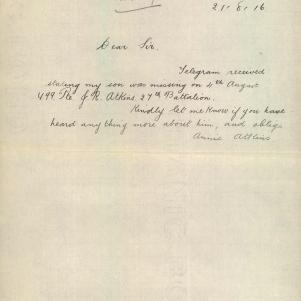 21.8.16
Dear Sir.
Telegram received
stating my son was missing on 4th August
499 Pte J. R. Atkins. 27th Battalion.
Kindly let me know if you have
heard anything more about him, and oblige
Annie Atkins